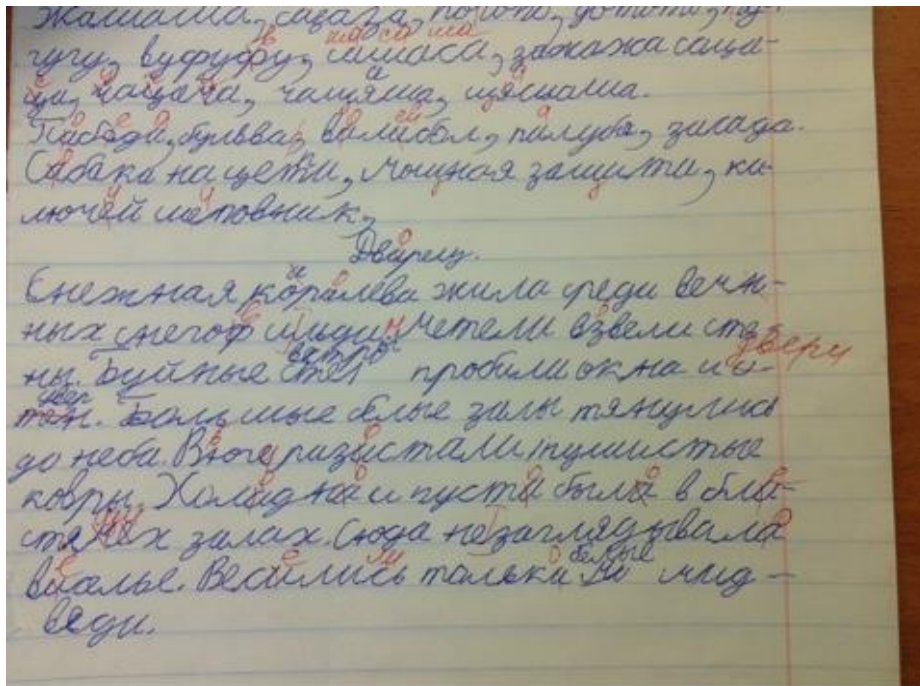 жашаша, сацаза, попопо, дотото, ку-
гугу, вуфуфу, шишаса, закажа саца-
ца, чащача, чащяша, щяшаша.
Пабеда, бульваз, валисбол, палуба, засада.
Сабака на цепи, мощная защита, ка-
лючей шиповник,
Дварец.
Снежная каралева жила среди вечн-
ных снегоф и льдин. Метели взвели сте-
ны. Буйные ветры пробили окна и двери
Большые белые залы тянулись
до неба. Вюги разастлали пушистые
ковры. Холадна и пуста была в бли-
стях залах. Сюда не заглядывала
виселье. Веселись только белые мид-
веди.